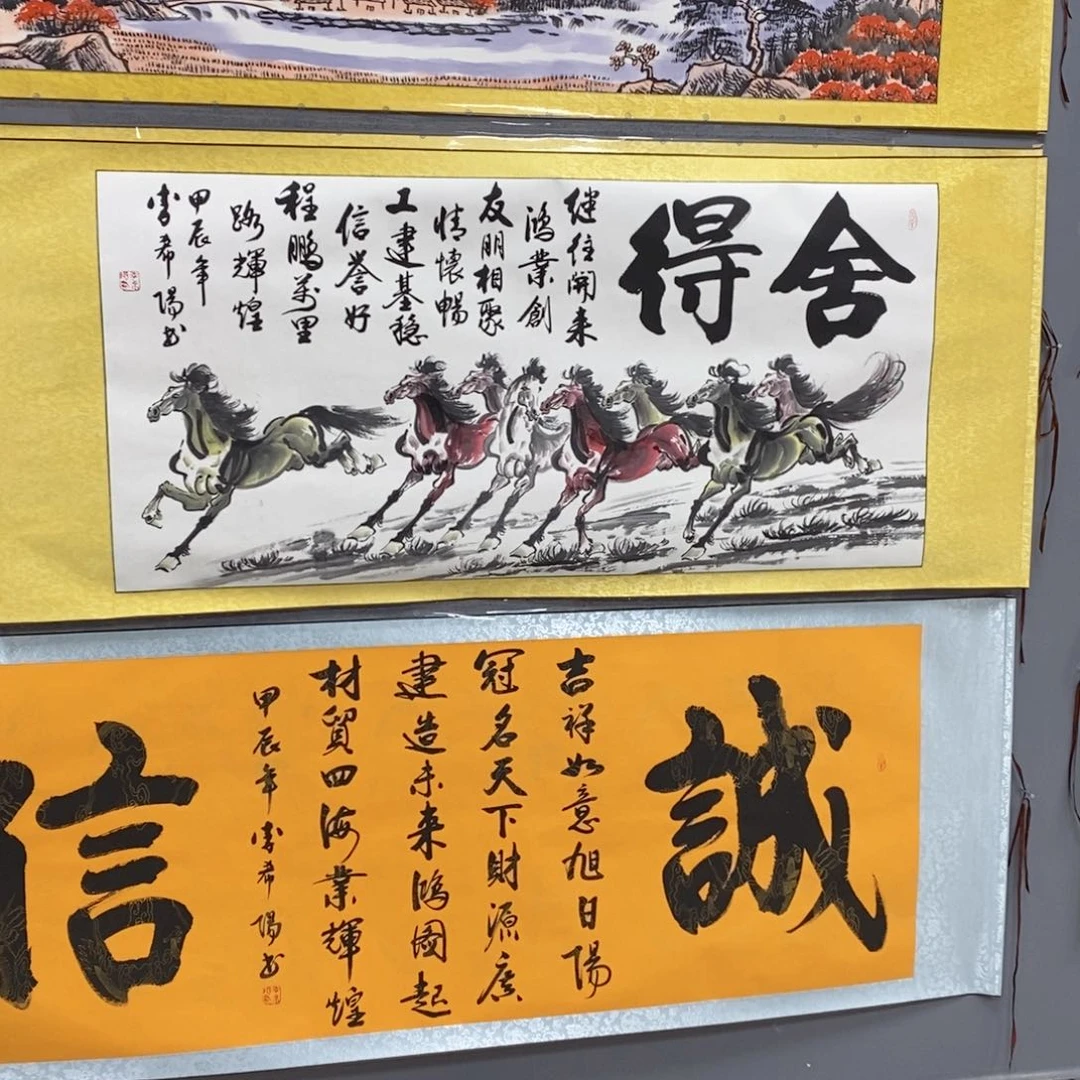 舍得
继往開来
鴻業創
友朋相聚
情懷暢
工建基稳
信誉好
程鹏萬里
路輝煌
甲辰年
李希陽书
誠
吉祥如意旭日陽
冠名天下財源廣
建造未来鴻图起
材貿四海業輝煌
甲辰年李希陽书
信